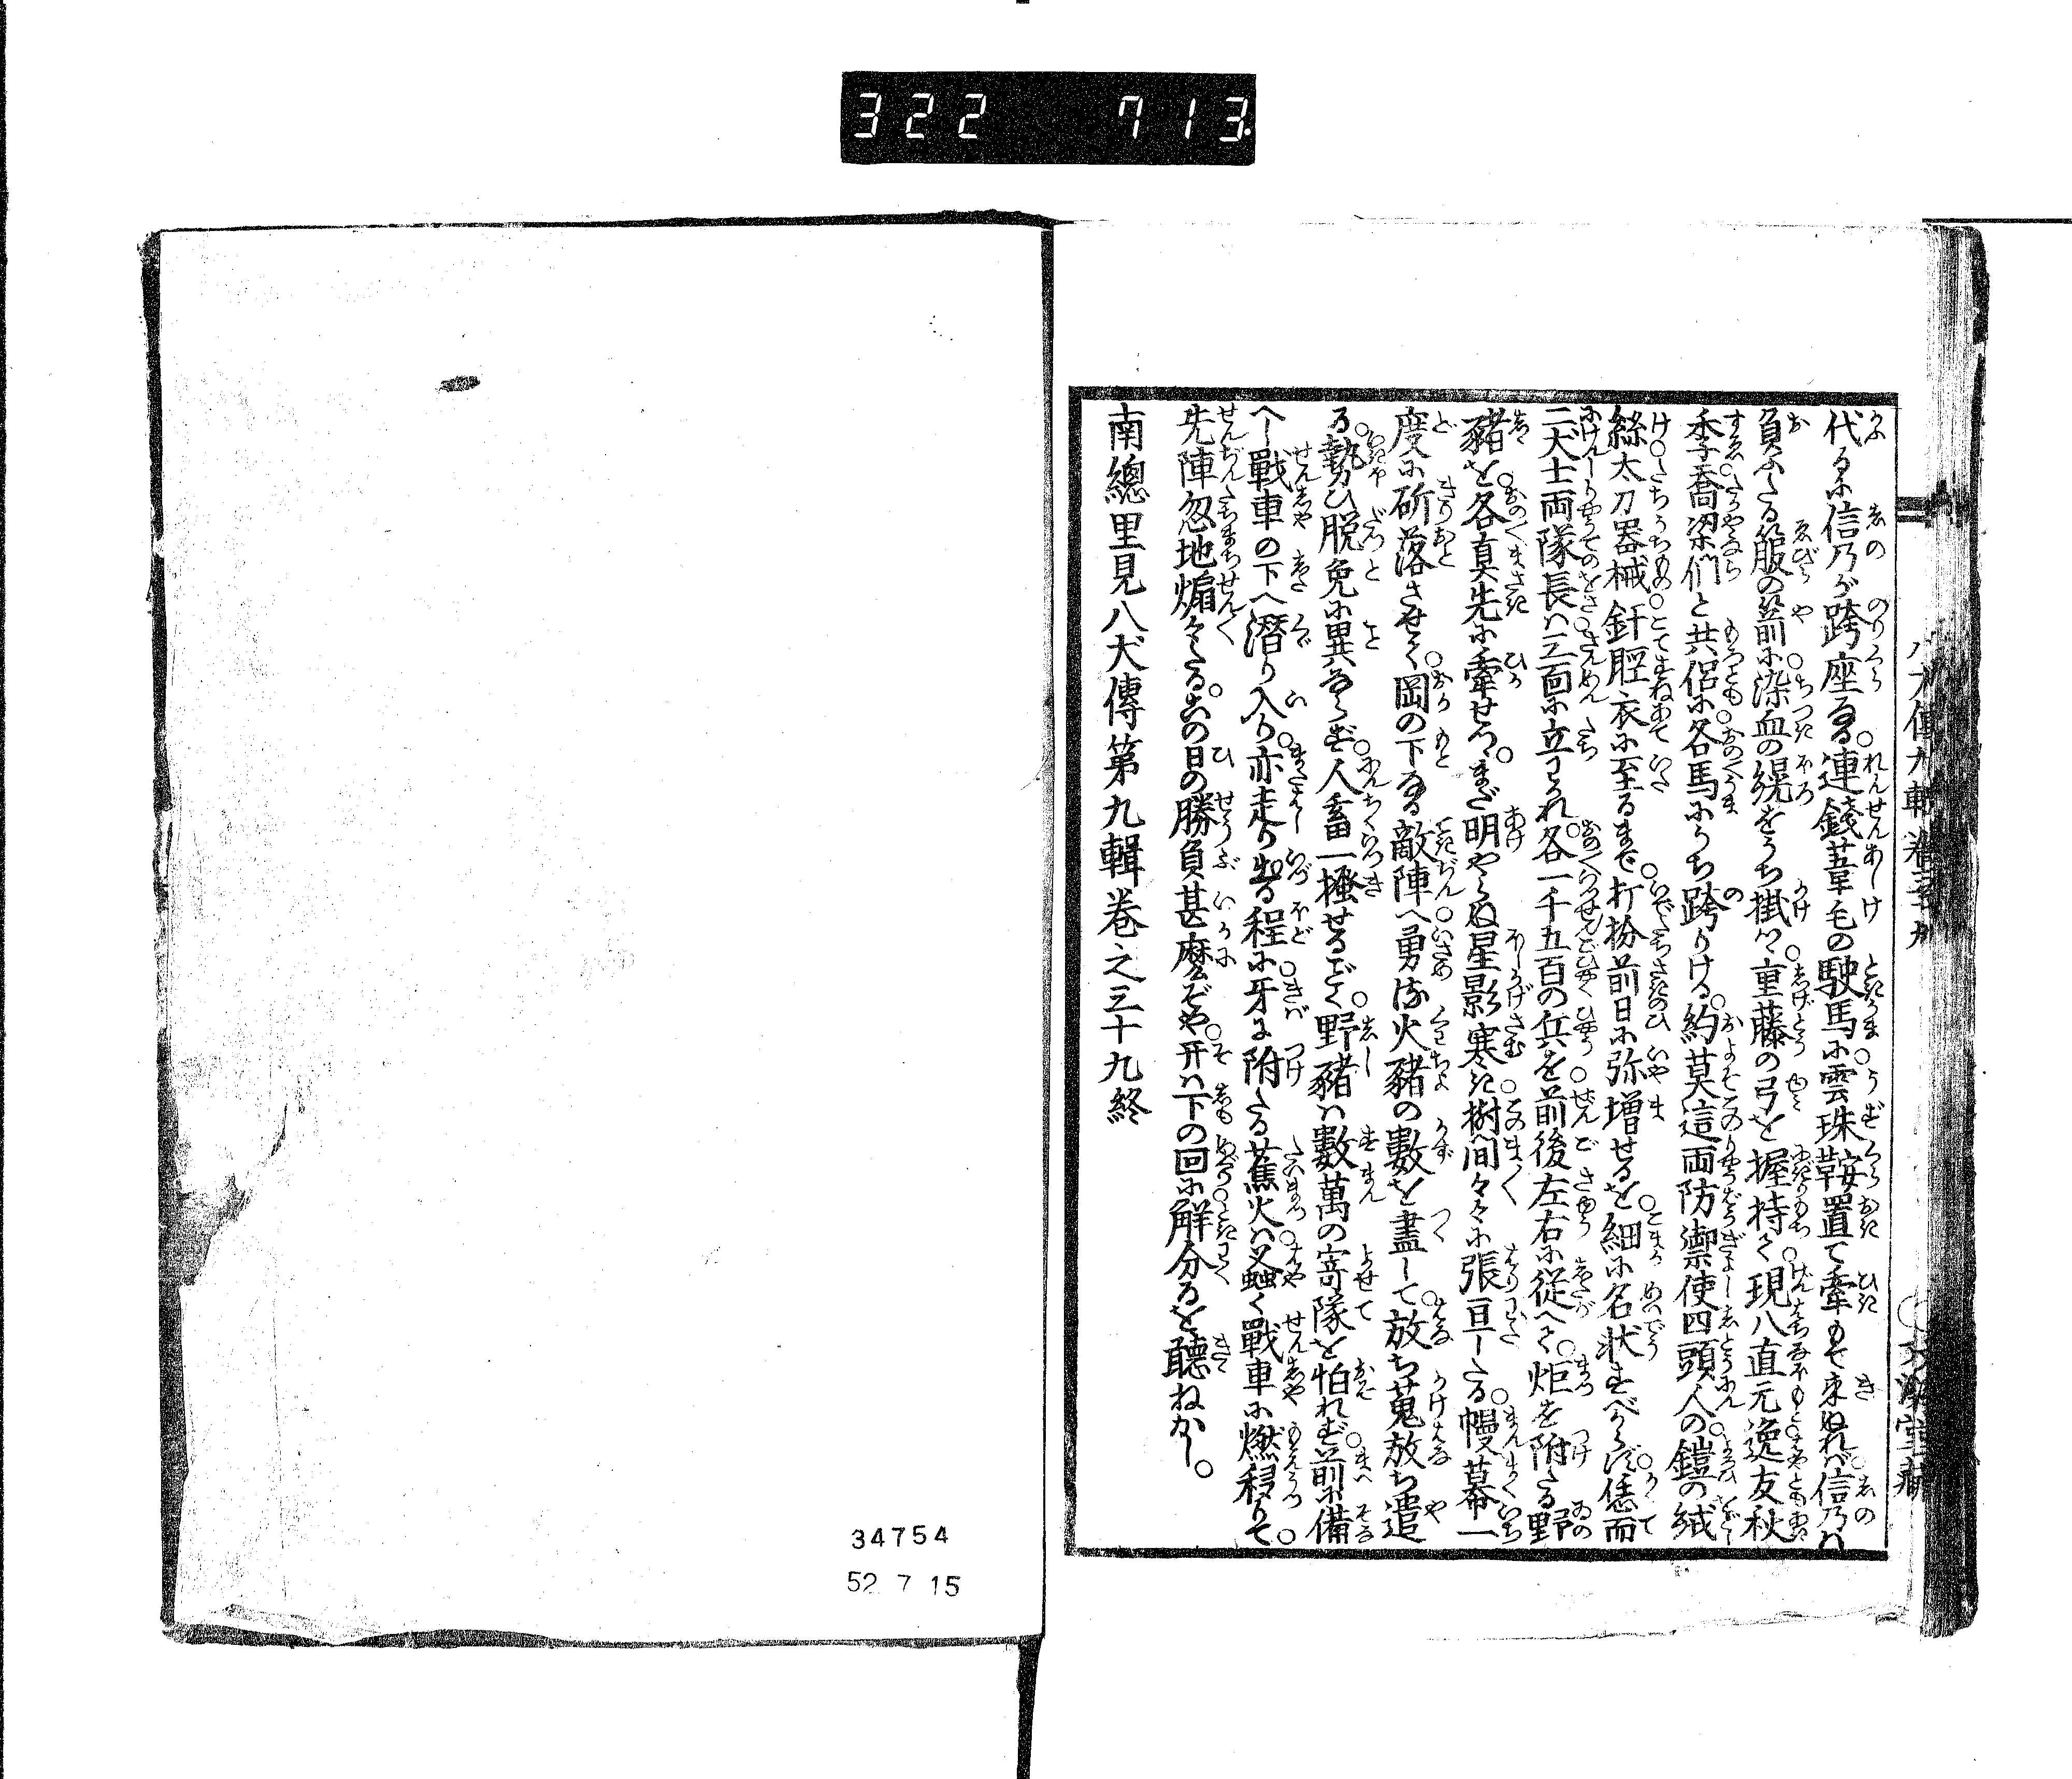 322 713
代るに信乃が跨座なる連錢葦毛の駛馬に雲珠鞍置て牽もて来ぬれバ信乃ハ
負ふたる箙の箭に染血の縨をうち掛つゝ重藤の弓を握持て現八直元逸友秋
季喬梁們と共侶に各馬にうち跨りける約莫這両防禦使四頭人の鎧の絨
絲太刀器械釬脛衣に至るまで打扮前日に弥増せるを細に名状すべからず恁而
二犬士両隊長ハ三面に立られ各一千五百の兵を前後左右に従へて炬を附たる野
豬を各真先に牽せつゝまだ明やらぬ星影寒き樹間々々に張亘したる幔幕一
度に斫落させて岡の下なる敵陣へ勇む火豬の數を盡して放ち蒐放ち遣
る勢ひ脱兔に異ならず人畜一擾せるごとく野豬ハ數萬の寄隊を怕れず前に備
へし戰車の下へ潜り入り亦走り出る程に牙に附たる蕉火ハ蚤く戰車に燃移りて
先陣忽地煽々たるこの日の勝負甚麼ぞや开ハ下の回に解分るを聽ねかし
南總里見八犬傳第九輯卷之三十九終
八犬傳九輯卷三十九
文溪堂藏
34754
52 7 15